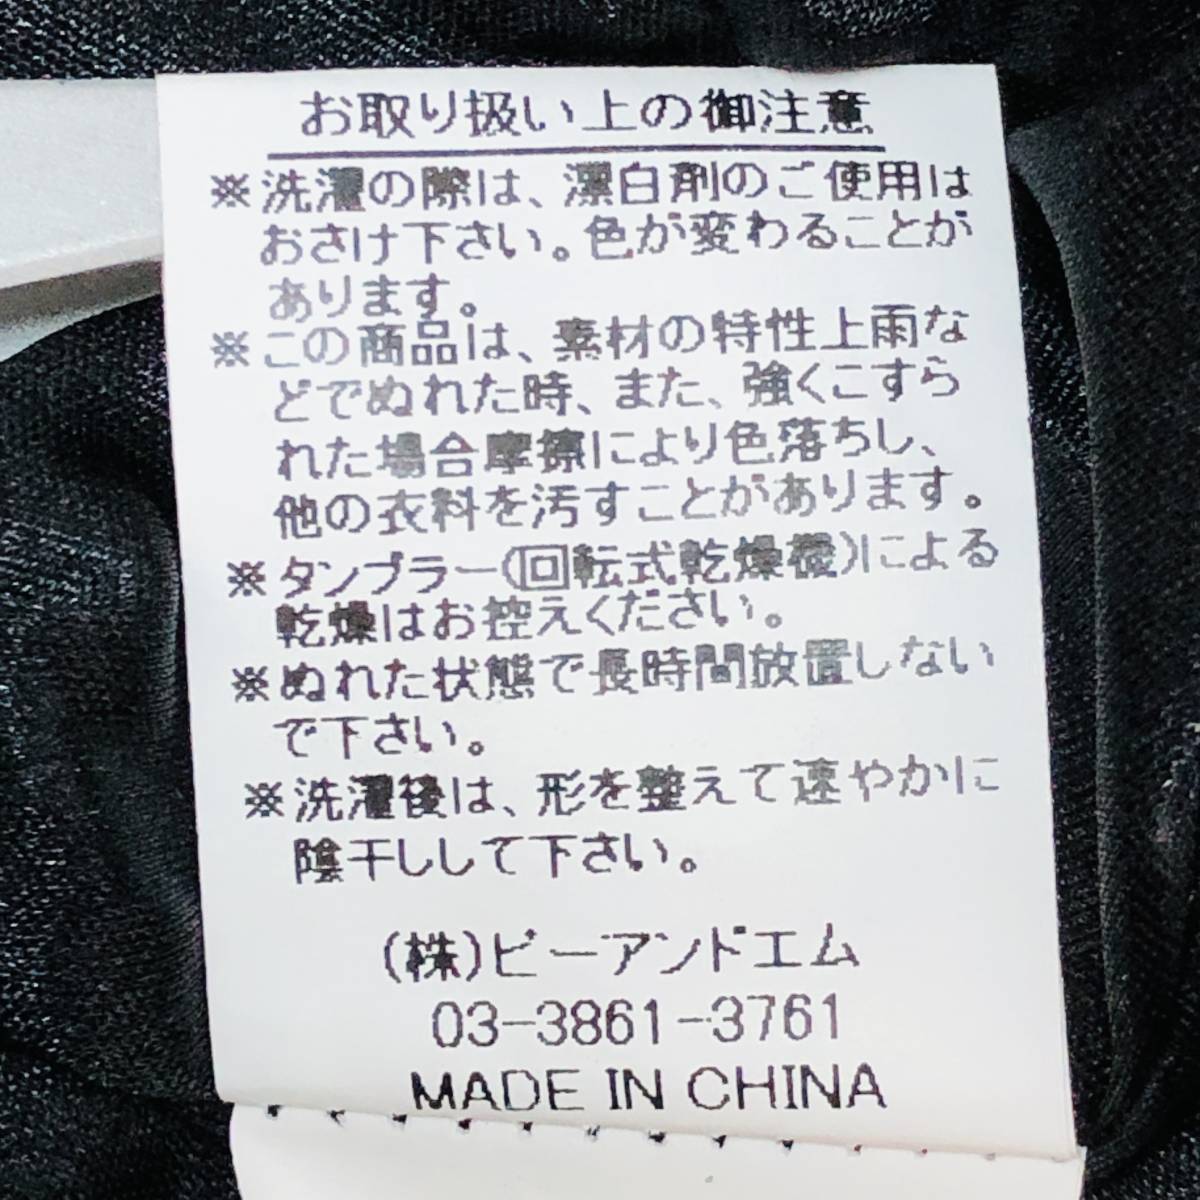 お取り扱い上の御注意
※洗濯の際は、漂白剤のご使用は
おさけ下さい。色が変わることが
あります。
※この商品は、素材の特性上雨な
どでぬれた時、また、強くこすら
れた場合摩擦により色落ちし、
他の衣料を汚すことがあります。
※タンブラー(回転式乾燥機)による
乾燥はお控えください。
※ぬれた状態で長時間放置しない
で下さい。
※洗濯後は、形を整えて速やかに
陰干ししして下さい。
(株)ビーアンドエム
03-3861-3761
MADE IN CHINA